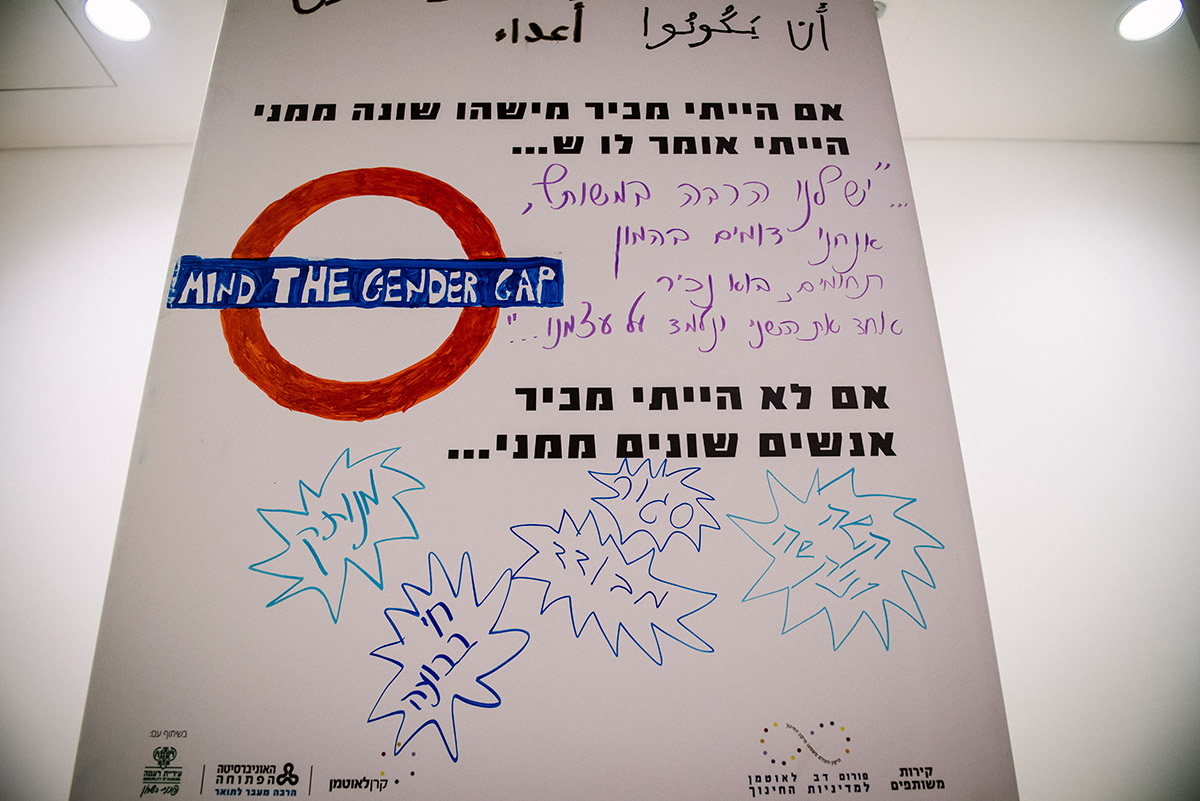 أَنْ يَكُونُوا أعداء
אם הייתי מכיר מישהו שונה ממני
הייתי אומר לו ש...
..."יש לנו הרבה במשותף,
אנחנו דומים בהמון
תחומים, בוא נכיר
אחד את השני ונלמד על עצמנו..."
MIND THE GENDER GAP
אם לא הייתי מכיר
אנשים שונים ממני...
מנותק
סגור
מבודד
חי בבועה
בשיתוף עם:
עיריית רעננה
האוניברסיטה
הפתוחה
הרבה מעבר לתואר
קרן לאוטמן
פורום דב לאוטמן
למדיניות החינוך
קירות
משותפים